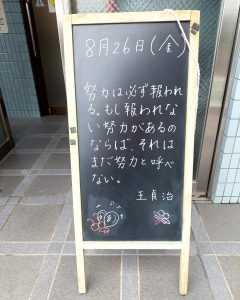 8月26日(金)
努力は必ず報われ
る。もし報われな
い努力があるの
ならば、それは
まだ努力と呼べ
ない。
王貞治